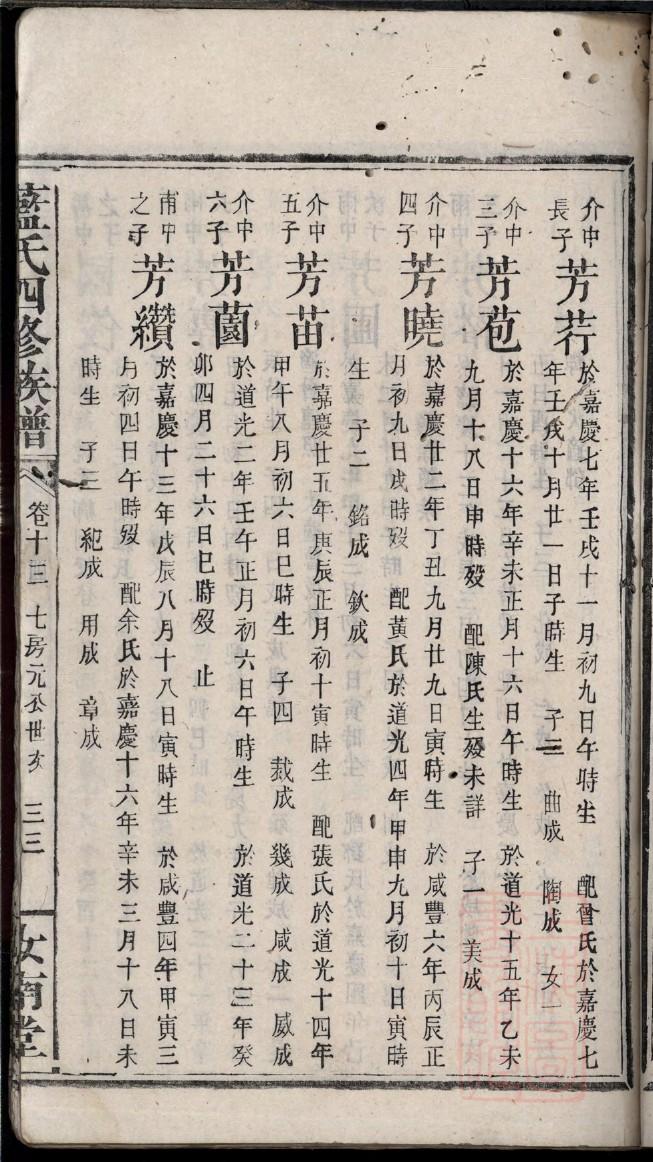 介中長子 芳荇 於嘉慶七年壬戌十一月初九日午時生 配曾氏於嘉慶七
年壬戌十月廿一日子時生 子二 曲成 陶成 女一
介中三子 芳苞 於嘉慶十六年辛未正月十六日午時生 於道光十五年乙未
九月十八日申時歿 配陳氏生歿未詳 子一 美成
介中四子 芳曉 於嘉慶廿二年丁丑九月廿九日寅時生 於咸豐六年丙辰正
月初九日戌時歿 配黃氏於道光四年甲申九月初十日寅時
生 子二 銘成 欽成
介中五子 芳苗 於嘉慶廿五年庚辰正月初十寅時生 配張氏於道光十四年
甲午八月初六日巳時生 子四 裁成 幾成 咸成 威成
介中六子 芳薗 於道光二年壬午正月初六日午時生 於道光二十三年癸
卯四月二十六日巳時歿 止
甫中之子 芳纘 於嘉慶十三年戊辰八月十八日寅時生 於咸豐四年甲寅三
月初四日午時歿 配余氏於嘉慶十六年辛未三月十八日未
時生 子三 紀成 用成 章成
藍氏四修族譜 卷十三 七房元公世系 三三 汝南堂